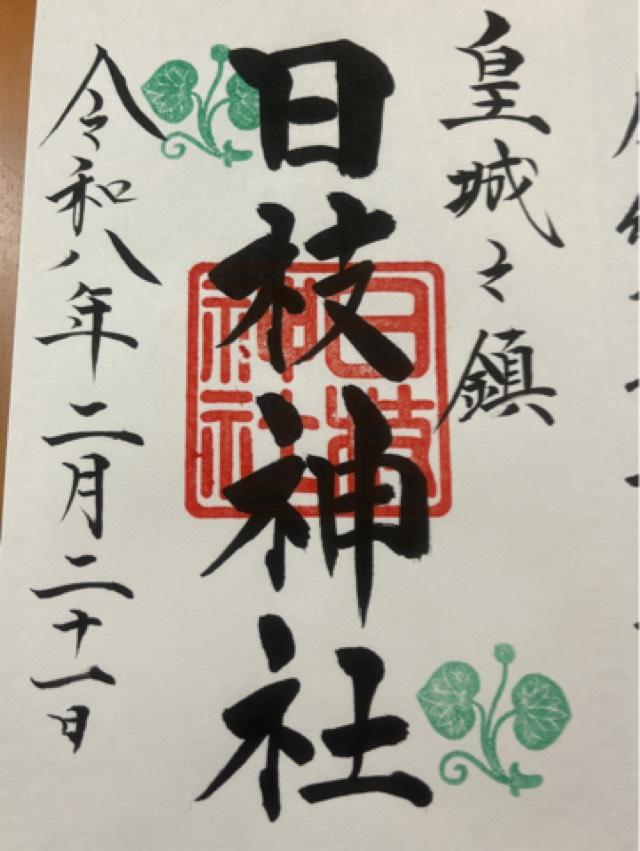 皇城之鎮
日枝神社
日枝神社
令和八年二月二十一日